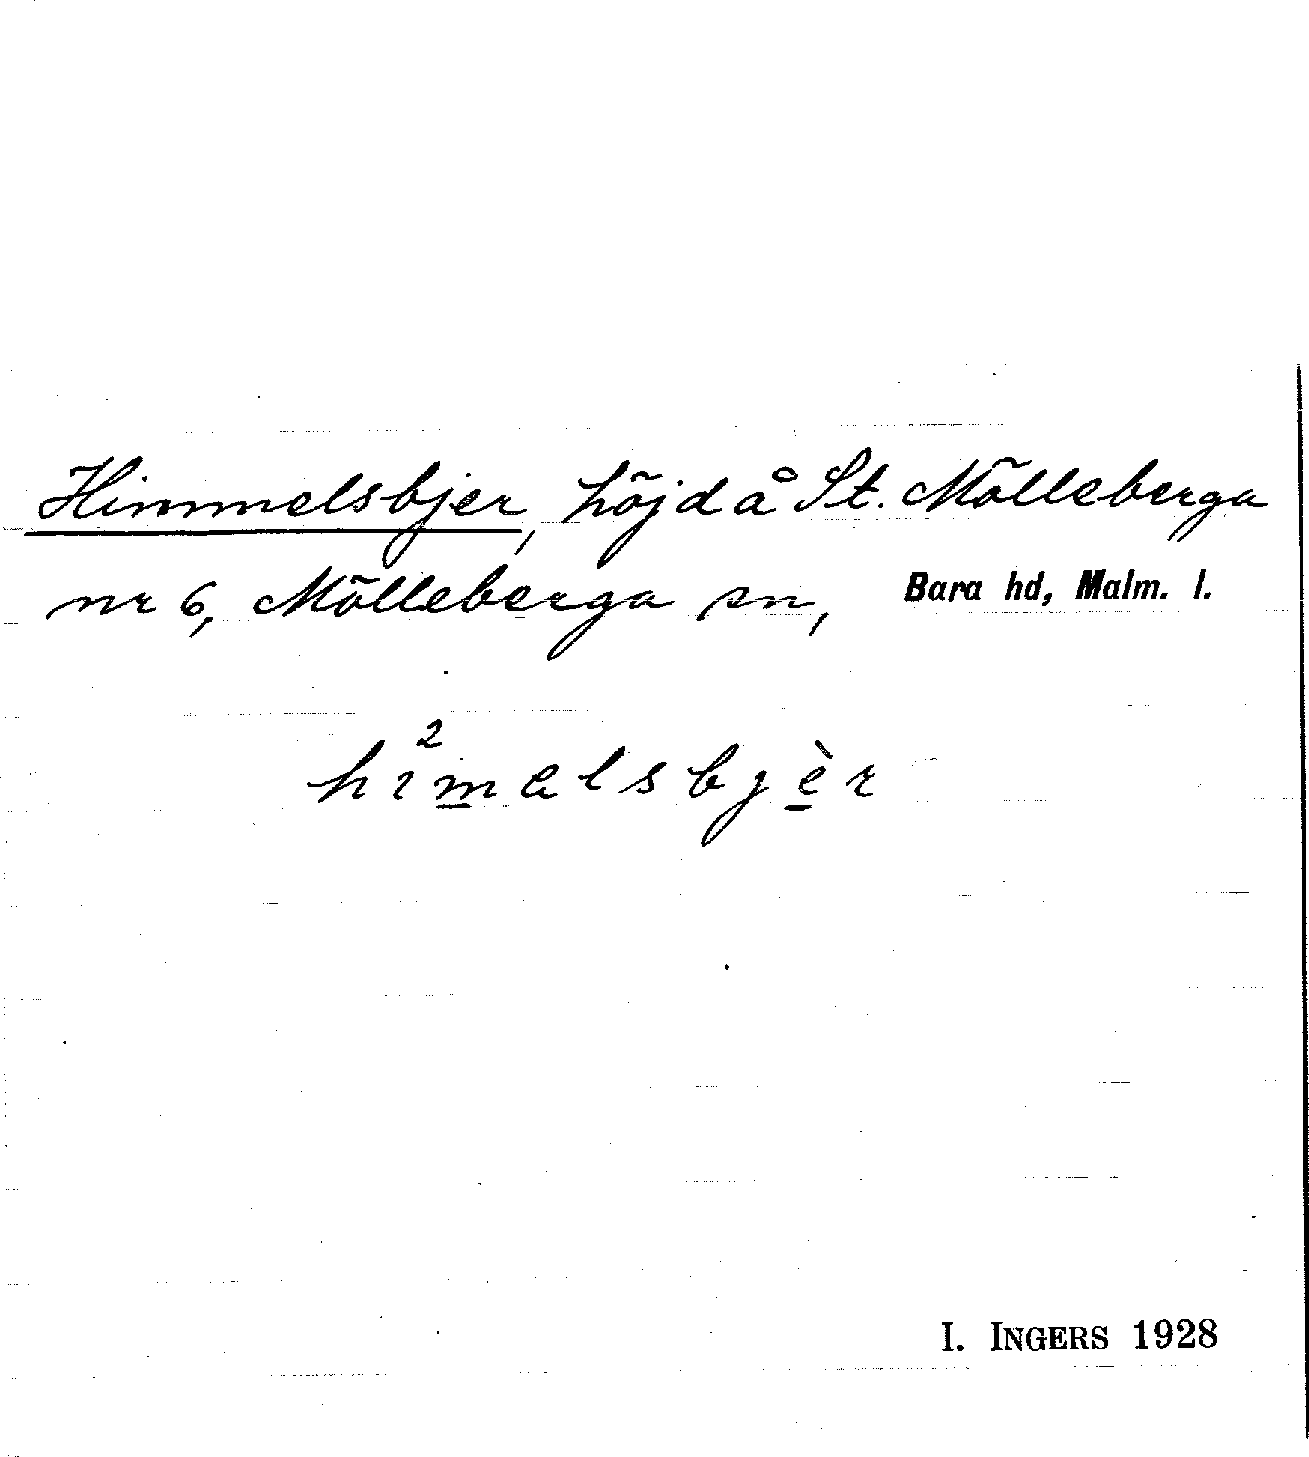 Himmelsbjer, höjd å St. Mölleberga
nr 6, Mölleberga sn, Bara hd, Malm. l.
hi²m̲elsbjè̲r
I. INGERS 1928